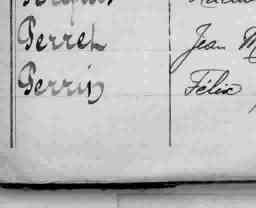 Perret Jean M
Perrin Félix